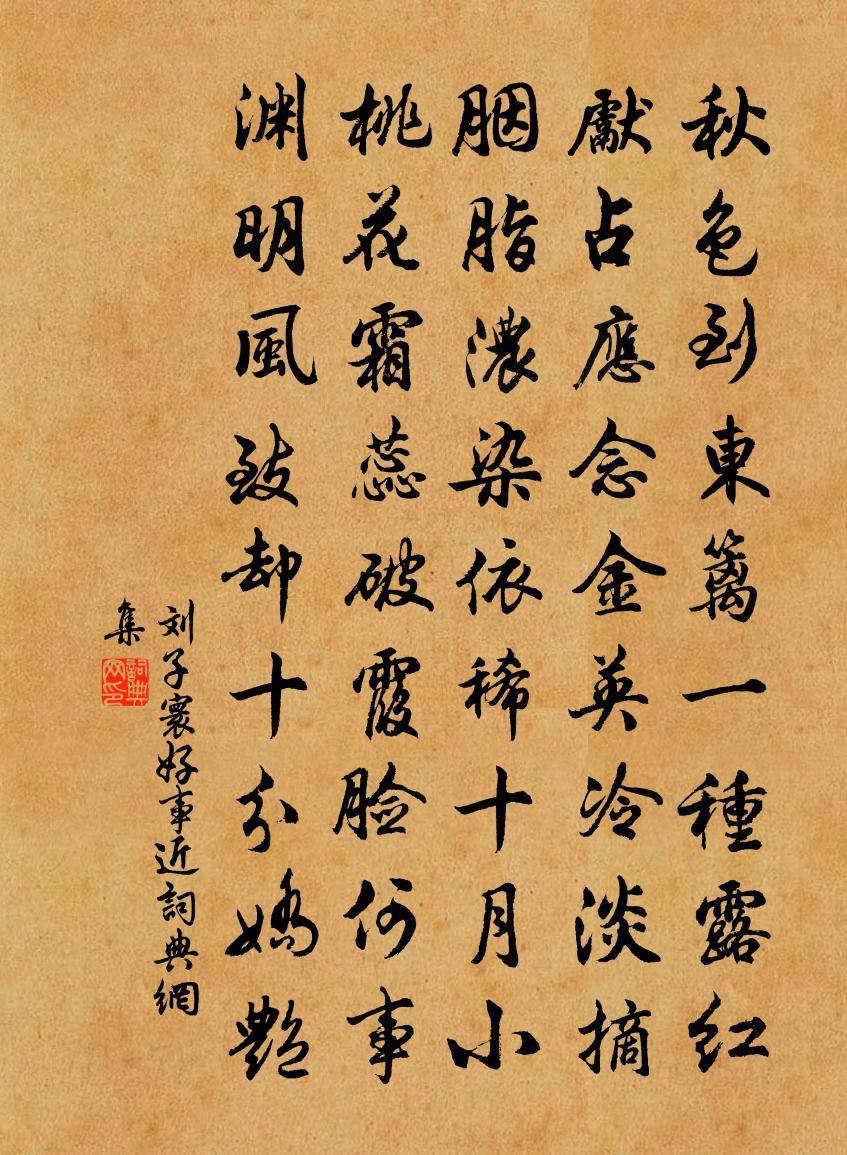 秋色到東篱一種露红
獻占應念金英冷淡摘
胭脂濃染依稀十月小
桃花霜蕊破霞脸何事
渊明風致却十分嬌艷
刘子寰好事近詞典網
集
詞典网印